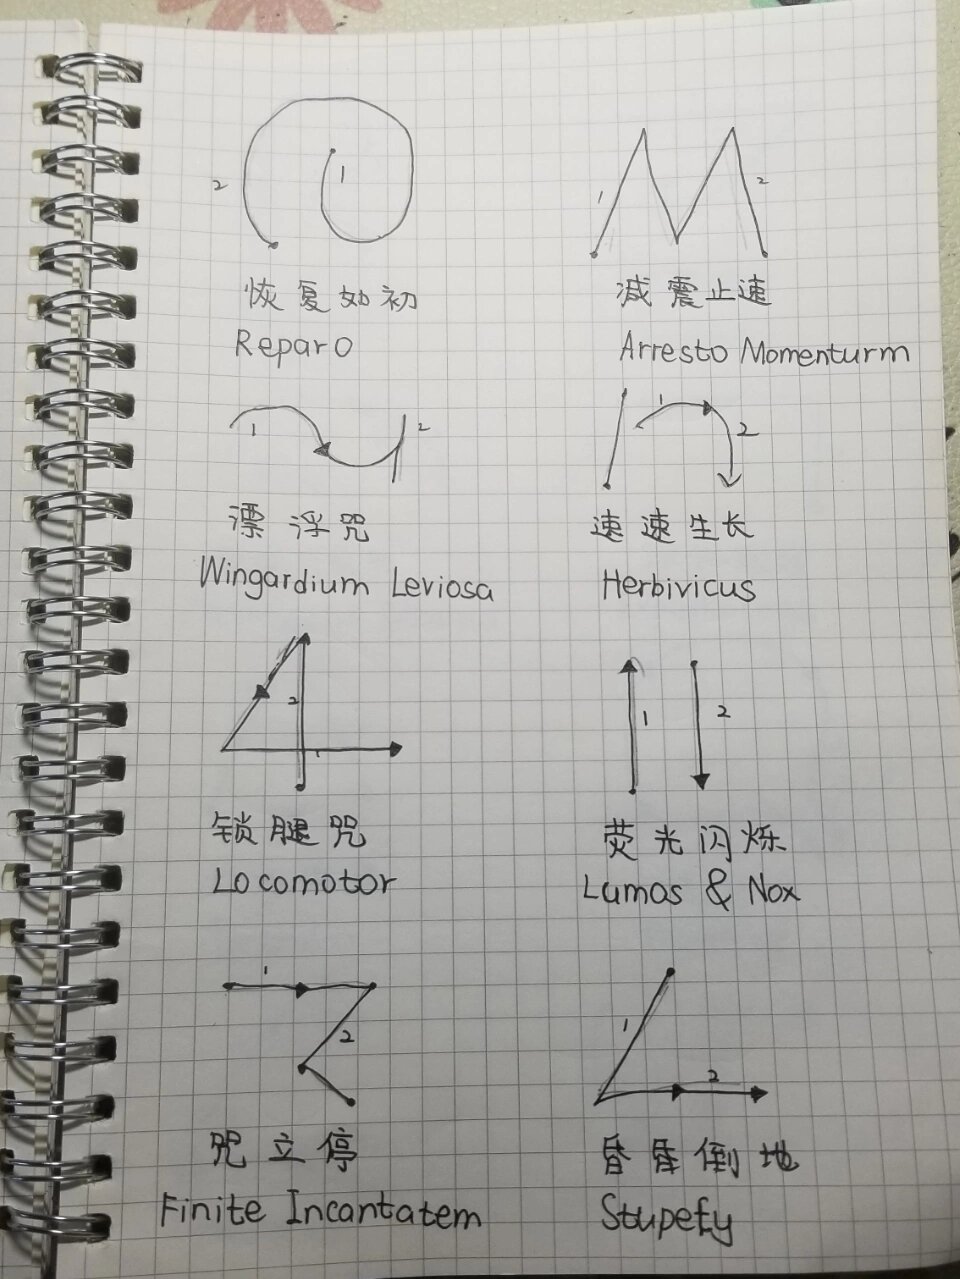 1
2
恢复如初
Reparo
1
2
减震止速
Arresto Momenturm
1
2
漂浮咒
Wingardium Leviosa
1
2
速速生长
Herbivicus
2
1
锁腿咒
Locomotor
1
2
荧光闪烁
Lumos & Nox
1
2
咒立停
Finite Incantatem
1
2
昏昏倒地
Stupefy